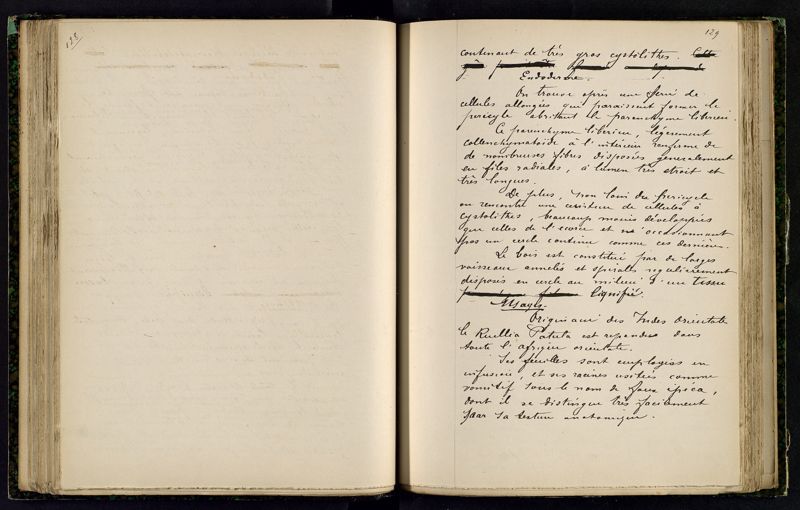 128
129
contenant de très gros cystolithes.
Endoderme.
On trouve après une série de
cellules allongées qui paraissent former le
péricycle abritant le parenchyme libérien.
Ce parenchyme libérien, légèrement
collenchymatoïde à l'intérieur renferme de
de nombreuses fibres disposées généralement
en files radiales, à lumen très étroit et
très longues.
De plus, non loin du péricycle
on rencontre une ceinture de cellules à
cystolithes, beaucoup moins développées
que celles de l'écorce et n'occasionnant
pas un cercle continu comme ces dernières.
Le bois est constitué par de larges
vaisseaux annelés et spiralés régulièrement
disposés en cercle au milieu d'un tissu
lignifié.
Usages.
Originaire des Indes Orientale
le Ruellia Patula est répandu dans
toute l'afrique orientale.
Ses feuilles sont employées en
infusion, et ses racines usitées comme
vomitif sous le nom de faux ipéca,
dont il se distingue très facilement
par sa texture anatomique.